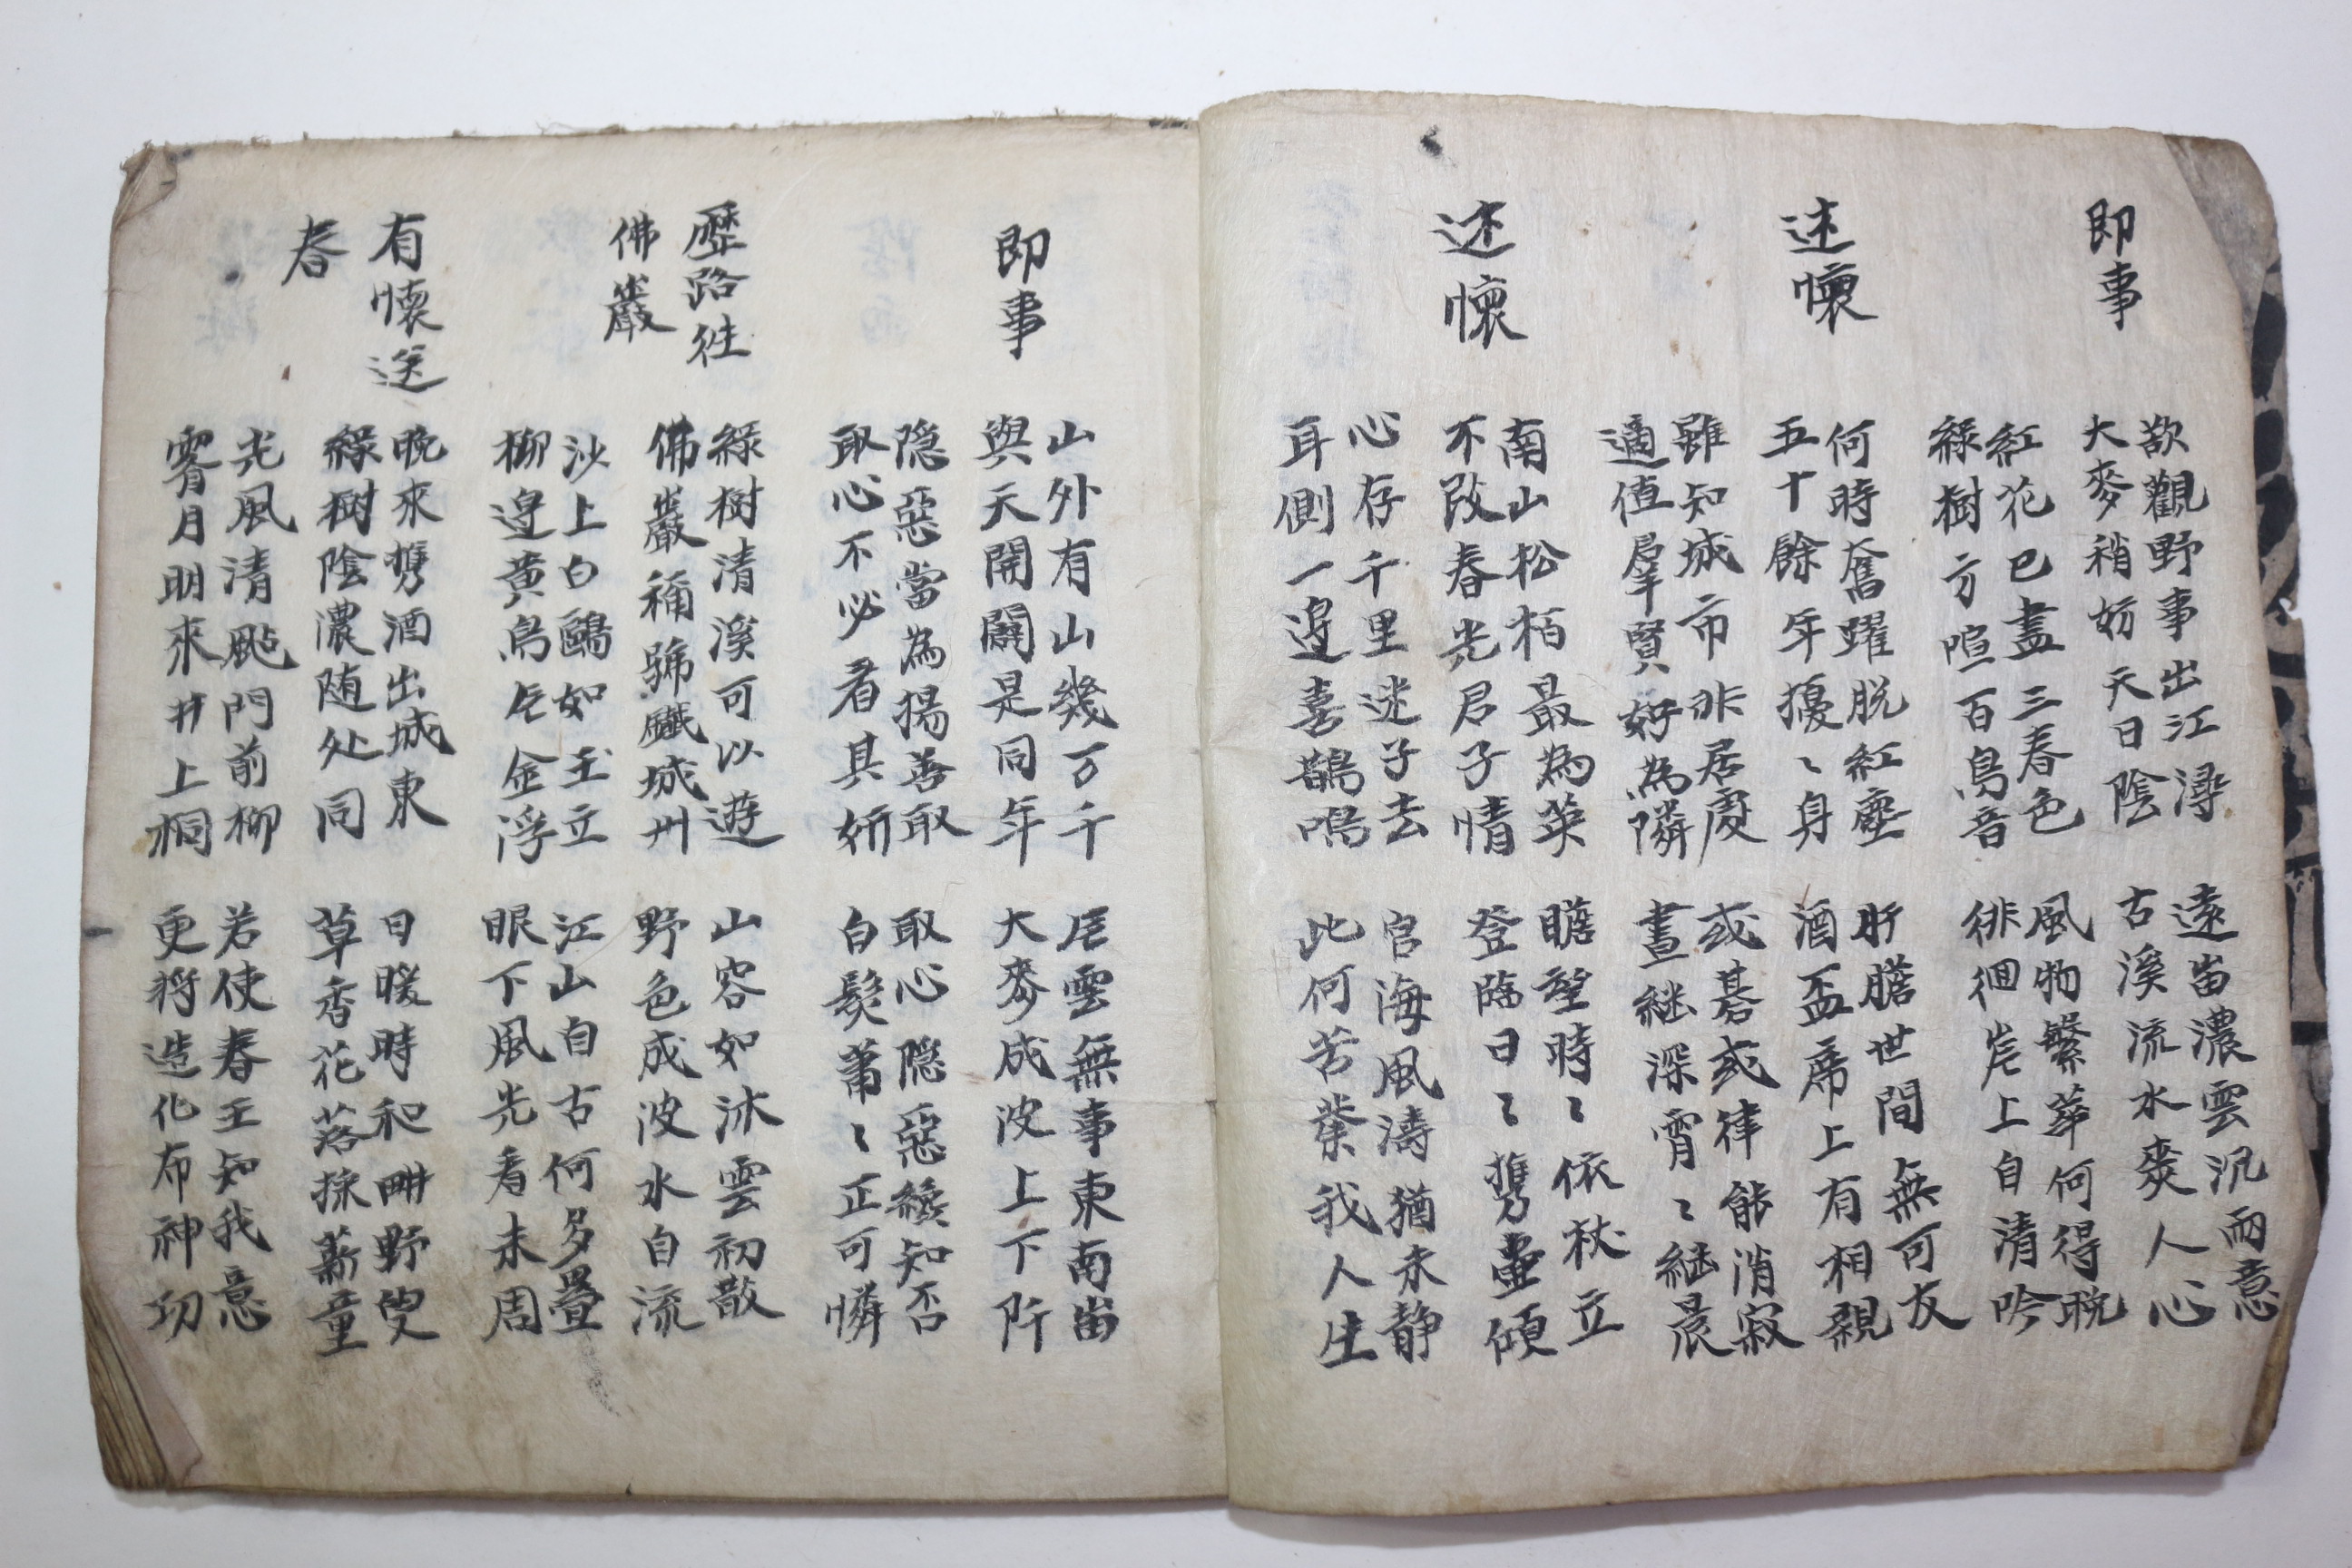 即事
欲觀野事出江潯
大麥稍妨天日陰
遠峀濃雲汎雨意
古溪流水爽人心
紅花已盡三春色
綠樹方喧百鳥音
風物繁華何得晩
徘徊岸上自清吟
述懷
何時奮躍脱紅塵
五十餘年擾〻身
肝膽世間無可友
酒盃席上有相親
雖知城市非居處
適値羣賢好為隣
或碁或律能消寂
晝継深宵〻継晨
述懷
南山松栢最為英
不改春光君子情
瞻望時〻依杖立
登臨日〻携壷傾
心存千里迷子去
耳側一邊喜鵲鳴
宦海風濤猶未静
此何苦業我人生
即事
山外有山幾万千
與天開闢是同年
尾雲無事東南峀
大麥成波上下阡
隠惡當為揚善取
取心不必看其妍
取心隠惡緣知否
白髮蕭〻正可憐
歷路徃
佛巖
綠樹清溪可以遊
佛巖稱號鐵城州
山容如沐雲初散
野色成波水自流
沙上白鷗如玉立
柳邊黄鳥乍金浮
江山自古何多疊
眼下風光看未周
有懷送
春
晩來携酒出城東
綠樹陰濃随处同
日暖時和畊野叟
草香花落採薪童
光風清颭門前柳
霽月明來井上桐
若使春王知我意
更將造化布神功